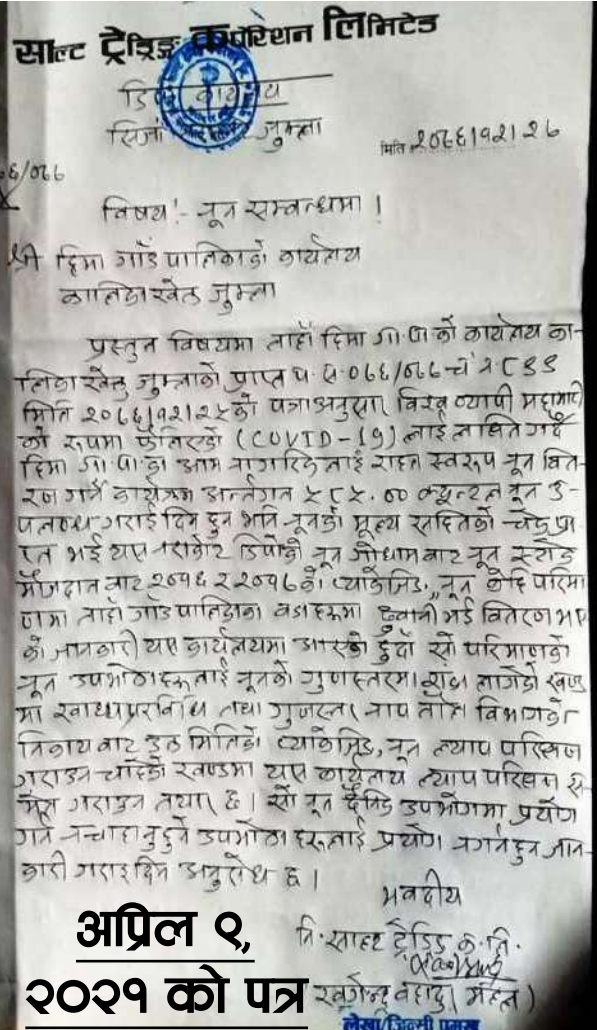 साल्ट ट्रेडिङ्ग कर्पोरेशन लिमिटेड
डि कार्यालय
सिंजा जुम्ला
मिति २०७७।१२।२७
/०७७
विषय:- नून सम्बन्धमा।
श्री हिमा गाँउपालिकाको कार्यालय
कालिकाखेत जुम्ला
प्रस्तुत विषयमा ताहाँ हिमा गा.पा को कार्यालय का-
लिकाखेत जुम्लाको प्राप्त प.स.०७६/०७७ च.न
मिति २०७७।१२।२५को पत्रअनुसार विश्व व्यापी महामारी
को रूपमा फैलिएको (COVID-19) लाई लक्षित गर्दै
हिमा गा.पा.का आम नागरिकलाई राहत स्वरूप नून वित-
रण गर्ने कार्यक्रम अन्तर्गत ५८५.०० क्युन्टल नून उ-
पलब्ध गराई दिनु हुन भनि नूनको मूल्य सहितको चेक प्रा-
प्त भई यस नराकोट डिपोको नून गोधामबाट नून स्टोक
मौज्दात बाट २०७६ र २०७७को प्याकेजिङ नून केहि परिमा
णमा ताहाँ गाँउपालिकाका वडाहरूमा ढुवानी भई वितरण भए
को जानकारी यस कार्यलयमा आएको हुँदा सो परिमाणको
नून उपभोक्ताहरूलाई नूनको गुणस्तरमा शंका लागेको खण्ड
मा खाद्य प्रविधि तथा गुणस्तर नाप तौल विभागको
निकाय बाट उक्त मितिको प्याकेजिङ नून ल्याप परिक्षण
गराउन चाहेको खण्डमा यस कार्यालय ल्याप परिक्षण स-
मेत गराउन तयार छ। सो नून दैनिक उपभोगमा प्रयोग
गर्न नचाहानुहुने उपभोक्ताहरूलाई प्रयोग नगर्नहुन जान-
कारी गराइदिन अनुरोध छ।
भवदीय
नि. साल्ट ट्रेडिङ क.लि.
खगेन्द्र बहादुर महत)
लेखा/जिन्सी प्रमुख
अप्रिल ९,
२०२१ को पत्र